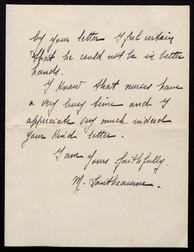 by your letter I feel certain
that he could not be in better
hands.
I know that nurses have
a very busy time and I
appreciate very much indeed
your kind letter.
I am yours faithfully
M.